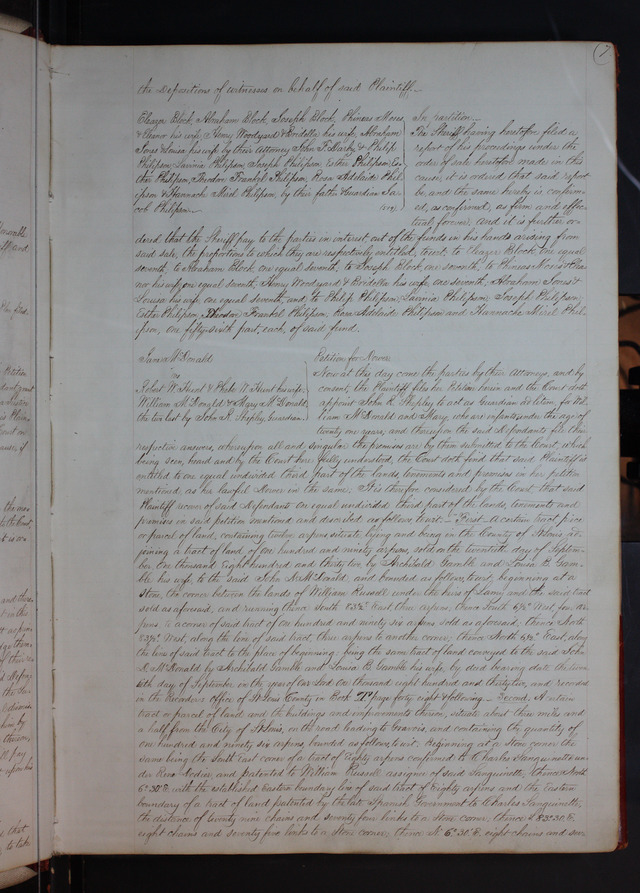 7
the Depositions of witnesses on behalf of said Plaintiff.
Eleazer Block, Abraham Block, Joseph Block, Phineas
& Eleanor his wife, Henry Woodyard & Bridella his wife, Abraham
Jones & Louisa his wife by their attorney John F. Darby & Philip
Philipson, Lavinia Philipson, Joseph Philipson, Esther Philipson,
Theodore Frankel Philipson, Rosa Adelaide Phil-
ipson & Hannache Mirel Philipson, by their father & Guardian Ja-
cob Philipson.
In partition
The Sheriff having heretofore filed a
report of his proceedings under the
order of sale heretofore made in this
cause, it is ordered that said report
be and the same hereby is confirm-
ed, as confirmed, as firm and effec-
tual forever. And it is further or-
dered that the Sheriff pay to the parties in interest out of the funds in his hands arising from
said sale, the proportions to which they are respectively entitled, to wit; to Eleazer Block one equal
seventh, to Abraham Block one equal seventh, to Joseph Block, one seventh, to Phineas & Elea-
nor his wife, one equal seventh, Henry Woodyard & Bridella his wife, one seventh, Abraham Jones &
Louisa his wife, one equal seventh, and to Philip Philipson, Lavinia Philipson, Joseph Philipson,
Esther Philipson, Theodore Frankel Philipson, Rosa Adelaide Philipson and Hannache Mirel Phil-
ipson, one fifty sixth part, each, of said fund.
McDonald
vs
Robert W. Hunt & his wife,
William McDonald & Mary McDonald,
the two last by John R. Shepley, Guardian.
Petition for Dower
Now at this day come the parties by their Attorneys, and by
consent, the Plaintiff files her Petition herein and the Court doth
appoint John R. Shepley to act as Guardian ad litem, for Wil-
liam McDonald and Mary, who are infants under the age of
twenty one years, and thereupon the said Defendants file their
respective answers, whereupon all and singular the premises are by them submitted to the Court, which
being seen, heard and by the Court here fully understood, the Court doth find that said Plaintiff is
entitled to one equal undivided third part of the lands, tenements and premises in her petition
mentioned as her lawful Dower in the same. It is therefore considered by the Court that said
Plaintiff recover of said Defendants one equal undivided third part of the lands, tenements and
premises in said petition mentioned and described as follows, to wit: First A certain tract, piece
or parcel of land, containing twelve arpens situate, lying and being in the County of St. Louis ad-
joining a tract of land of one hundred and ninety arpens, sold on the twentieth day of Septem-
ber One thousand eight hundred and thirty two, by Archibald Gamble and Louisa B. Gam-
ble his wife, to the said John McDonald, and bounded as follows, to wit, beginning at a
Stone, the corner between the lands of William Russell under the heirs of Lami and the said tract
sold as aforesaid, and running thence South 83½° East three arpens, thence South 6½° West, four ar-
pens to a corner of said tract of one hundred and ninety six arpens sold as aforesaid, thence North
83½° West, along the line of said tract, three arpens to another corner, thence North 6½° East, along
the line of said tract to the place of beginning, being the same tract of land conveyed to the said John
McDonald by Archibald Gamble and Louisa B. Gamble his wife, by deed bearing date the
day of September in the year of our Lord One thousand eight hundred and thirty two, and recorded
in the Recorder's office of St. Louis County in Book page forty eight & following. Second. A certain
tract or parcel of land and the buildings and improvements thereon, situate about three miles and
a half from the City of St. Louis, on the road leading to Gravois, and containing the quantity of
one hundred and ninety six arpens, bounded as follows, to wit. Beginning at a Stone corner the
same being the South East corner of a tract of Eighty arpens confirmed to Charles Sanguinette un-
der and patented to William Russell assignee of said Sanguinette, thence North
6° 30' E with the established Eastern boundary line of said tract of Eighty arpens and the Eastern
boundary of a tract of land patented by the late Spanish Government to Charles Sanguinette,
the distance of twenty nine chains and seventy four links to a Stone corner, thence S 83° 30' E,
eight chains and seventy five links to a Stone corner, thence N 6° 30' E, eight chains and seve